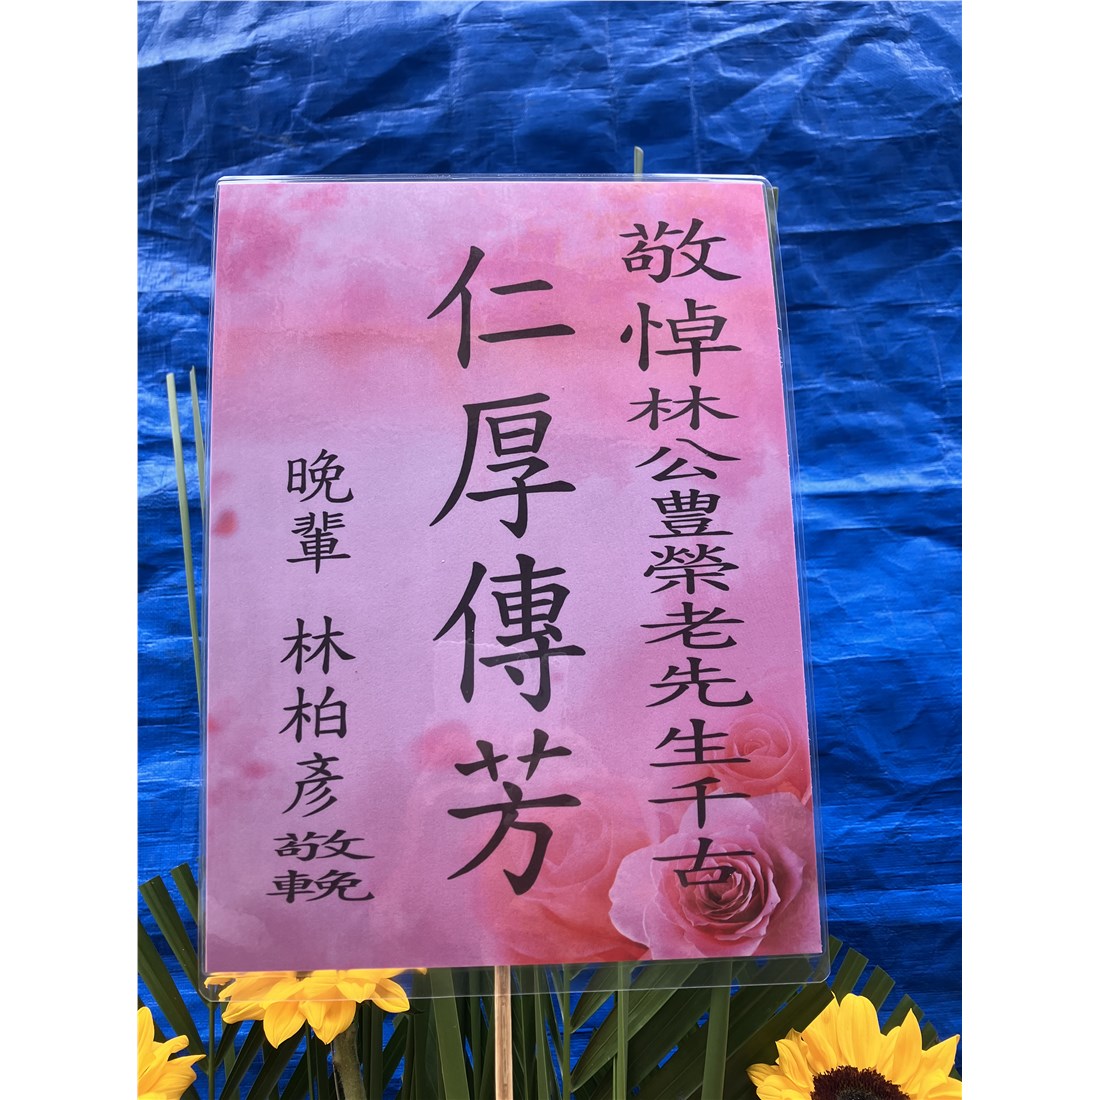 敬悼林公豊榮老先生千古
仁厚傳芳
晚輩 林柏彥敬輓